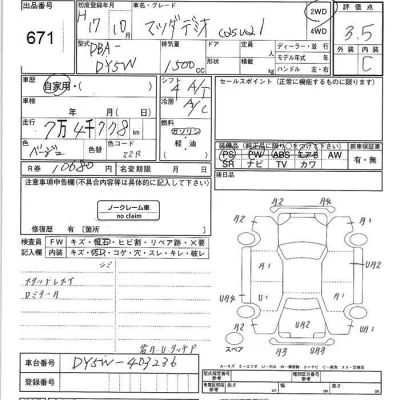 出品番号 初度登録年月 車名・グレード 2WD 評価点
671 H17年10月 マツダデミオ casual 4WD 3.5
型式 排気量 ドア 定員 ディーラー・並行 外装 内装
DBA- モデル年式
DY5W 1500cc 形状 積載 ハンドル 左・右 C
人
kg
車歴 シフト セールスポイント (正常に機能するものに限る)
自家用・( ) 4 A/T
車検 冷房
年 月( 日) A/C
走行 燃料
7万4千778km ガソリン
軽・油
色 色替 カラーNo. 装備品 (純正品に限り○をつけて下さい) 新車保証書
ベージュ 22R PS PW ABS エアB AW
R券 10680 名変期限 月 日 SR ナビ TV カワ 有・無
注意事項申告欄(不具合内容等は具体的に記入して下さい) 後日品
ノークレーム車
no claim
修復歴 有( )【箇所 】
検査員 FW キズ・飛石・ヒビ割・リペア跡・×要
記入欄 内装 キズ・汚れ・コゲ・穴・スレ・キレ・破レ
シミ
A2 A4
A2 U2
A1 A1 UA2
UA4 U2
A1 A1 UA2
A3 A3
スペア
車台番号 DY5W-403236
登録番号